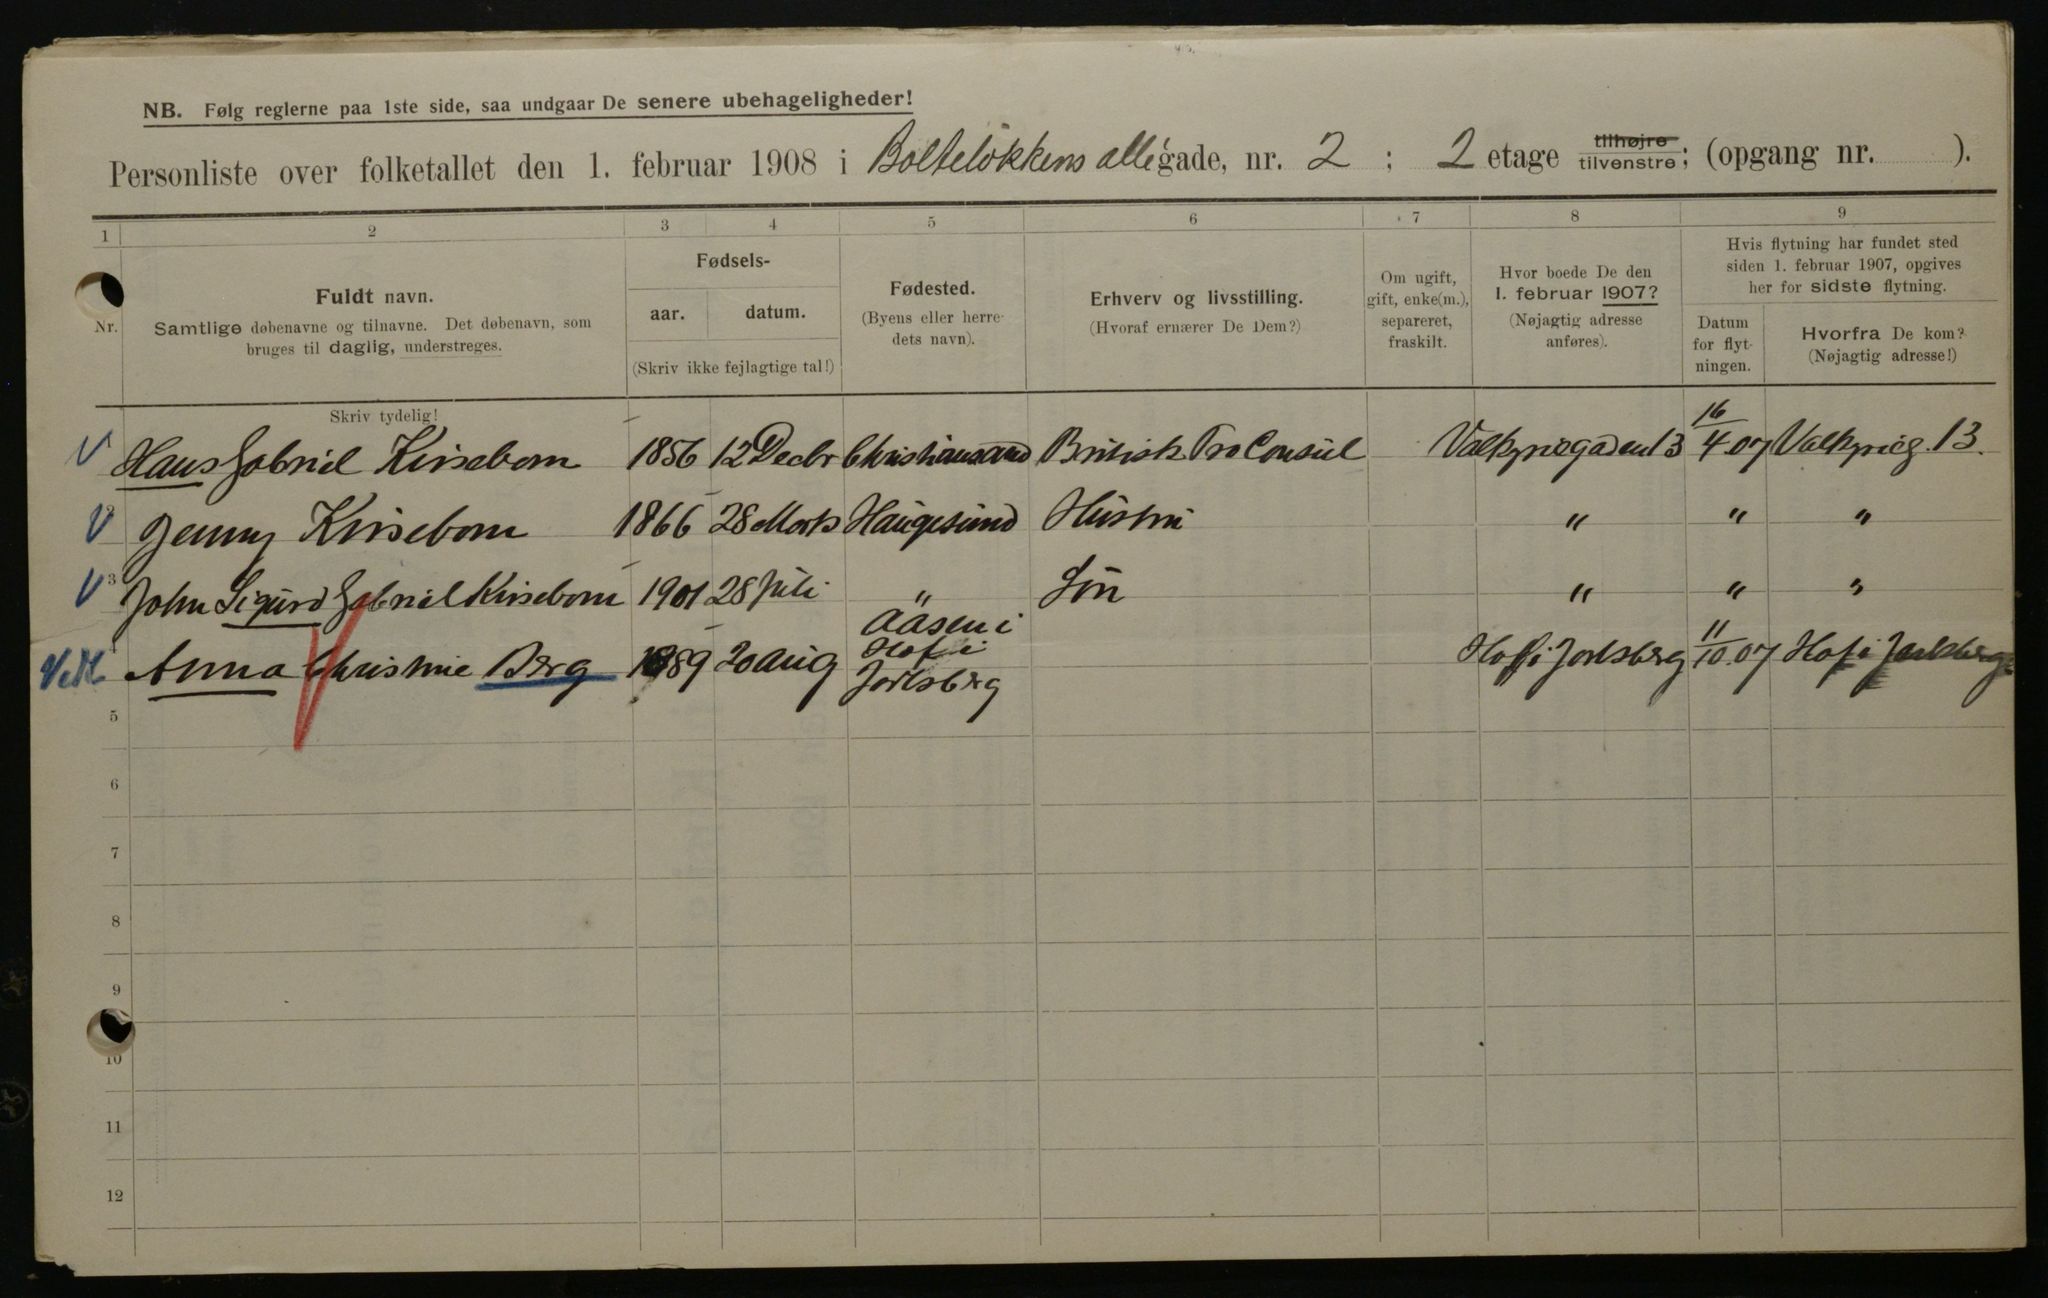 NB. Følg reglerne paa 1ste side, saa undgaar De senere ubehageligheder!
Personliste over folketallet den 1. februar 1908 i Bolteløkkens allé gade, nr. 2 ; 2 etage tilhøjre tilvenstre; (opgang nr. ).
1 2 3 4 5 6 7 8 9
Nr.
Fuldt navn.
Samtlige døbenavne og tilnavne. Det døbenavn, som
bruges til daglig, understreges.
Fødsels-
aar. datum.
(Skriv ikke fejlagtige tal!)
Fødested.
(Byens eller herre-
dets navn).
Erhverv og livsstilling.
(Hvoraf ernærer De Dem?)
Om ugift,
gift, enke(m.),
separeret,
fraskilt.
Hvor boede De den
1. februar 1907?
(Nøjagtig adresse
anføres).
Hvis flytning har fundet sted
siden 1. februar 1907, opgives
her for sidste flytning.
Datum
for flyt-
ningen.
Hvorfra De kom?
(Nøjagtig adresse!)
Skriv tydelig!
V Hans Gabriel Kirsebom 1856 12 Decbr Christiansand Britisk ProConsul Valkyriegaden 13 16/4 07 Valkyrieg. 13.
V 2 Jenny Kirsebom 1866 28 Marts Haugesund Hustru " " "
V 3 John Sigurd Gabriel Kirsebom 1901 28 Juli " Søn " " "
4 Anna Christine Berg 1889 20 aug Aasen i Hof i Jarlsberg Hof i Jarlsberg 11/10.07 Hof i Jarlsberg
5
6
7
8
9
10
11
12